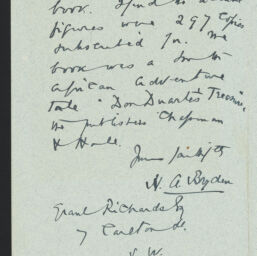 book. I find the actual
figures were 297 copies
subscribed for. The
book was a South
African adventure
tale "Don Duarte's Treasure,"
the publishers Chapman
& Hall.
Yours faithfully
H. A Bryden
Grant Richards Esq
7 Carlton St.
S. W.